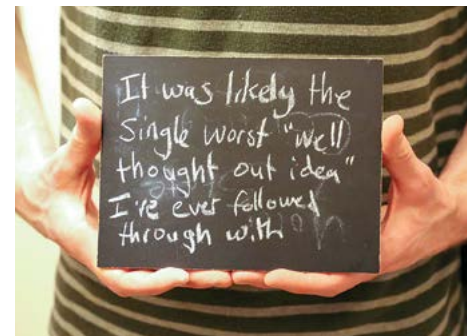 It was likely the
Single worst "well
thought out idea"
I've ever followed
through with